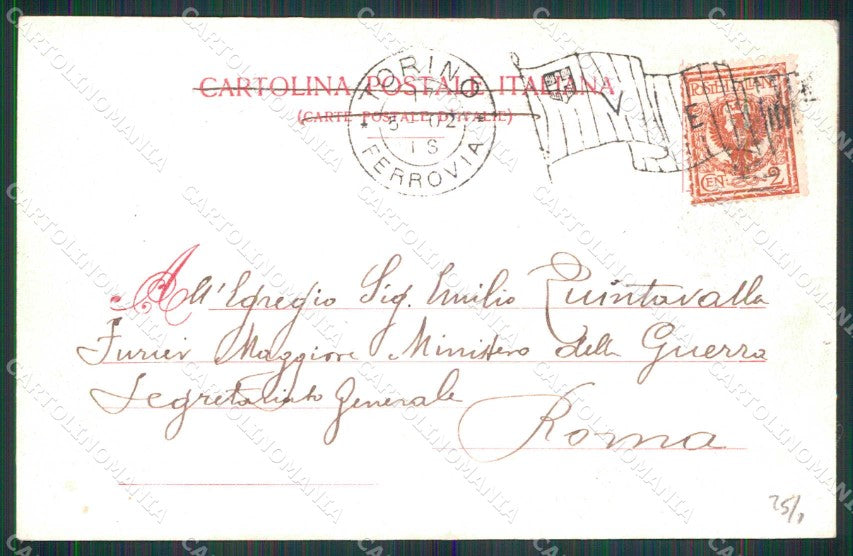 CARTOLINA POSTALE ITALIANA
(CARTE POSTALE D'ITALIE)
TORINO
FERROVIA
POSTE ITALIANE
CEN 2
All'Egregio Sig. Emilio Quintavalla
Furier Maggiore Ministero della Guerra
Segretariato Generale
Roma
25/
CARTOLINOMANIA